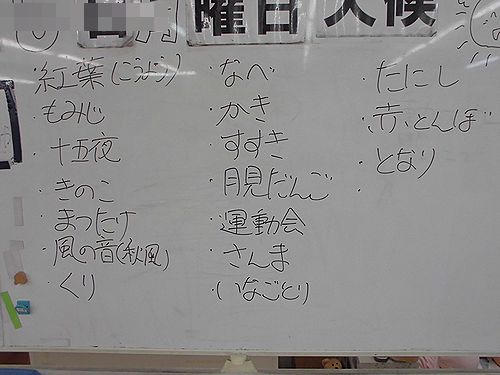 日
曜日
天候
・紅葉(こうよう)
・もみじ
・十五夜
・きのこ
・まつたけ
・風の音(秋風)
・くり
・なべ
・かき
・すすき
・月見だんご
・運動会
・さんま
・いなごとり
・たにし
・赤とんぼ
・となり
・